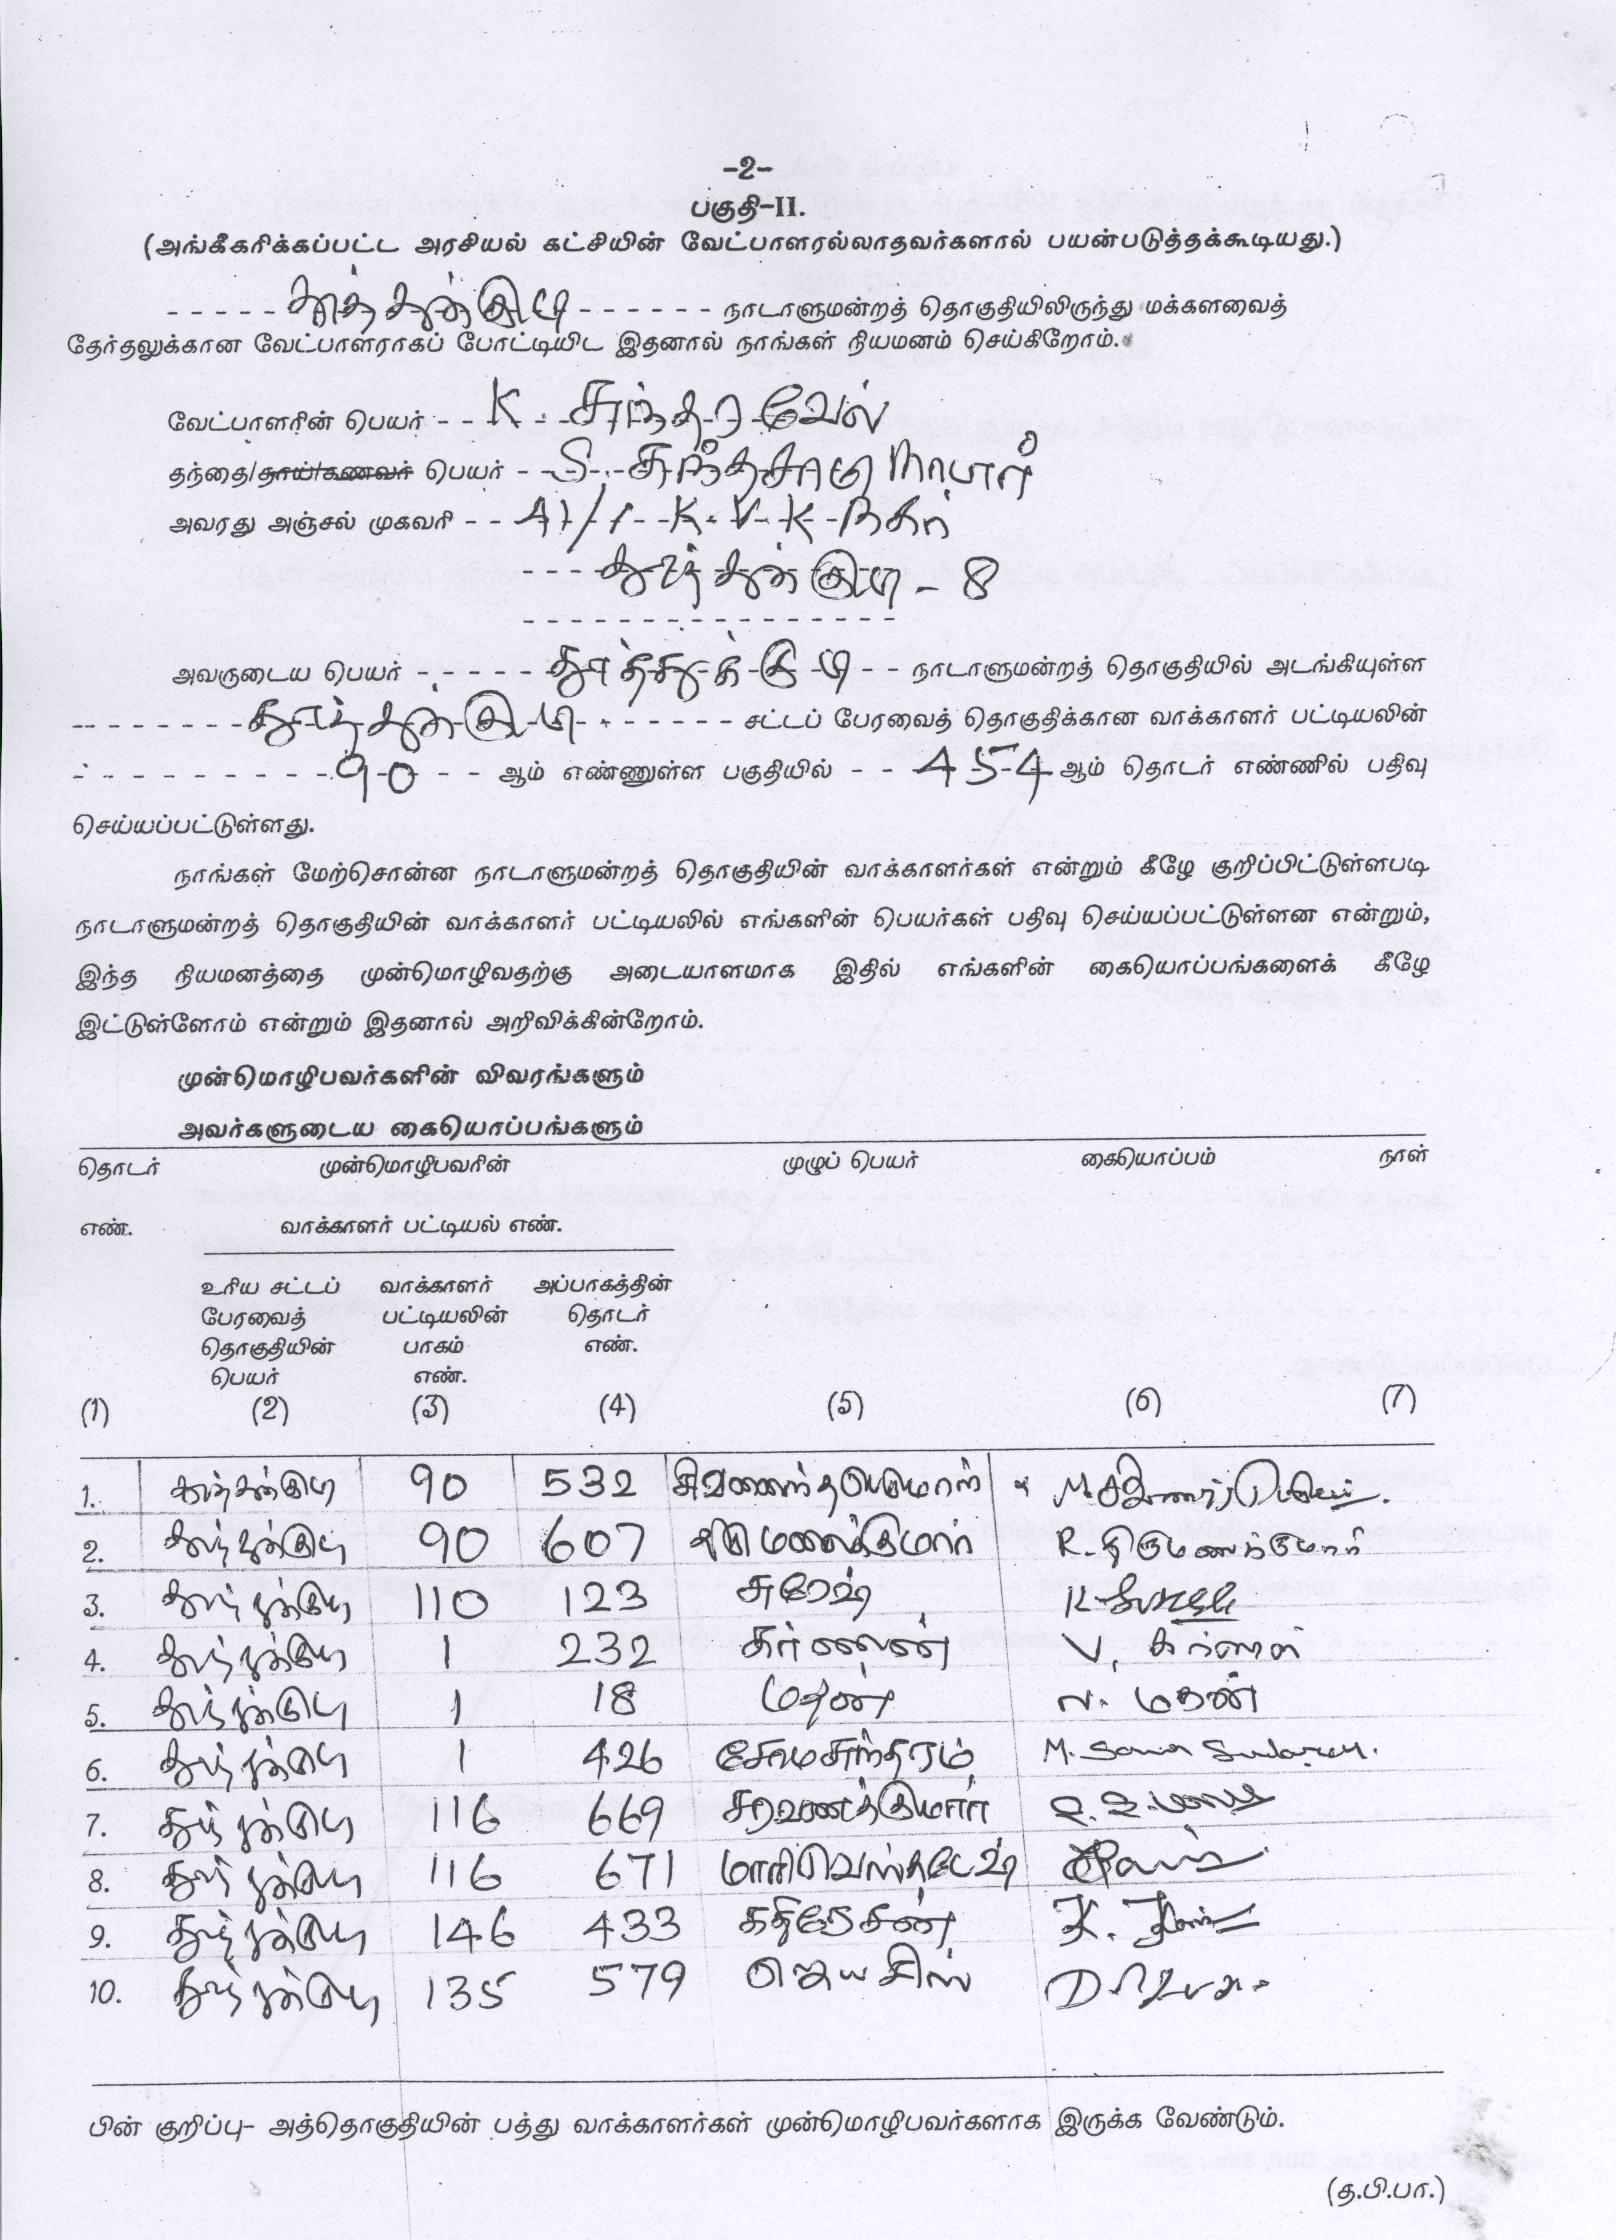 -2-
பகுதி-II.
(அங்கீகரிக்கப்பட்ட அரசியல் கட்சியின் வேட்பாளரல்லாதவர்களால் பயன்படுத்தக்கூடியது.)
தூத்துக்குடி நாடாளுமன்றத் தொகுதியிலிருந்து மக்களவைத்
தேர்தலுக்கான வேட்பாளராகப் போட்டியிட இதனால் நாங்கள் நியமனம் செய்கிறோம்.
வேட்பாளரின் பெயர் K. சுந்தரவேல்
தந்தை/தாய்/கணவர் பெயர் S. கந்தசாமி நாடார்
அவரது அஞ்சல் முகவரி 41/1 K.V.K நகர்
தூத்துக்குடி - 8
அவருடைய பெயர் தூத்துக்குடி நாடாளுமன்றத் தொகுதியில் அடங்கியுள்ள
தூத்துக்குடி சட்டப் பேரவைத் தொகுதிக்கான வாக்காளர் பட்டியலின்
90 ஆம் எண்ணுள்ள பகுதியில் 454 ஆம் தொடர் எண்ணில் பதிவு
செய்யப்பட்டுள்ளது.
நாங்கள் மேற்சொன்ன நாடாளுமன்றத் தொகுதியின் வாக்காளர்கள் என்றும் கீழே குறிப்பிட்டுள்ளபடி
நாடாளுமன்றத் தொகுதியின் வாக்காளர் பட்டியலில் எங்களின் பெயர்கள் பதிவு செய்யப்பட்டுள்ளன என்றும்,
இந்த நியமனத்தை முன்மொழிவதற்கு அடையாளமாக இதில் எங்களின் கையொப்பங்களைக் கீழே
இட்டுள்ளோம் என்றும் இதனால் அறிவிக்கின்றோம்.
முன்மொழிபவர்களின் விவரங்களும்
அவர்களுடைய கையொப்பங்களும்
தொடர் முன்மொழிபவரின் முழுப் பெயர் கையொப்பம் நாள்
எண். வாக்காளர் பட்டியல் எண்.
உரிய சட்டப் வாக்காளர் அப்பாகத்தின்
பேரவைத் பட்டியலின் தொடர்
தொகுதியின் பாகம் எண்.
பெயர் எண்.
(1) (2) (3) (4) (5) (6) (7)
1. தூத்துக்குடி 90 532 சிவணைந்தபெருமாள்
2. தூத்துக்குடி 90 607 திருமணிக்குமார் R. திருமணிக்குமார்
3. தூத்துக்குடி 110 123 சுரேஷ்
4. தூத்துக்குடி 1 232 கர்ணன் V. கர்ணன்
5. தூத்துக்குடி 1 18 மதன் N. மதன்
6. தூத்துக்குடி 1 426 சோமசுந்தரம் M. Soma Sundaram.
7. தூத்துக்குடி 116 669 சரவணக்குமார்
8. தூத்துக்குடி 116 671 மாரிவெங்கடேஷ்
9. தூத்துக்குடி 146 433 கதிரேசன்
10. தூத்துக்குடி 135 579
பின் குறிப்பு- அத்தொகுதியின் பத்து வாக்காளர்கள் முன்மொழிபவர்களாக இருக்க வேண்டும்.
(த.பி.பா.)